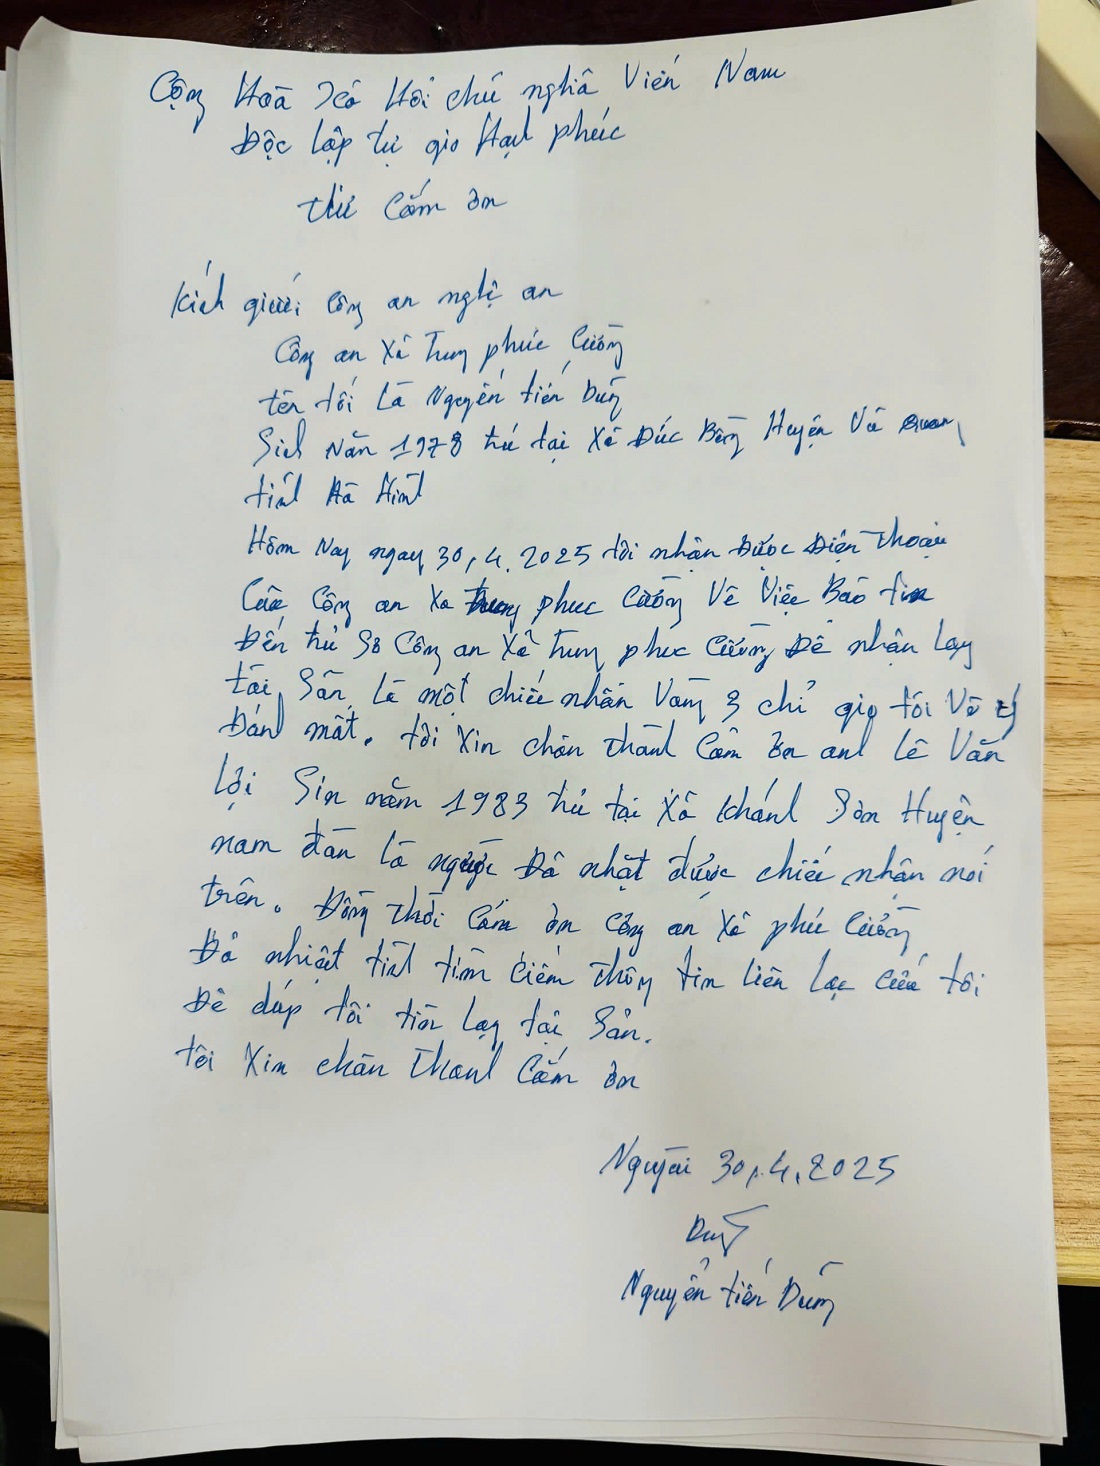 Cộng Hoà Xã Hội chủ nghĩa Viến Nam
Độc lập tự gio Hạnh phúc
thư Cảm ơn
Kích giưới Công an nghệ an
Công an Xã Trung phúc Cường
tên tôi Là Nguyễn tiến Dũng
Sinh Năm 1978 trú tại Xã Đức Bồng Huyện Vũ Quang
tỉnh Hà Tĩnh
Hôm Nay ngay 30.4.2025 tôi nhận Được Điện Thoại
Của Công an Xa Trung phuc Cường Về Việc Báo tin
Đến trụ Sở Công an Xã Trung phuc Cường Để nhận Lạy
tài Sản Là một chiếc nhẫn Vàng 3 chỉ gio tôi Vô ý
Đánh mất. tôi Xin chân thành Cảm ơn anh Lê Văn
Lợi Sin năm 1983 trú tại Xã Khánh Sơn Huyện
nam đàn là người Đã nhặt được chiếc nhận nói
trên. Đồng thời Cảm ơn Công an Xã phúc Cường
Đã nhiệt tình tìm Ciếm thông tin liên Lạc Của tôi
Để dúp tôi tìn Lạy tại Sản.
tôi Xin chân Thanh Cảm ơn
30.4.2025
Dũng
Nguyễn tiến Dũng